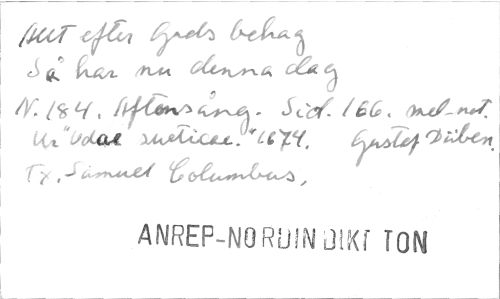 Allt efter Guds behag
Så har nu denna dag
N. 184. Aftonsång. Sid. 166. mel-not.
Ur "Odae sueticae." 1674. Gustaf Düben.
Tx. Samuel Columbus,
ANREP-NORDIN DIKT TON